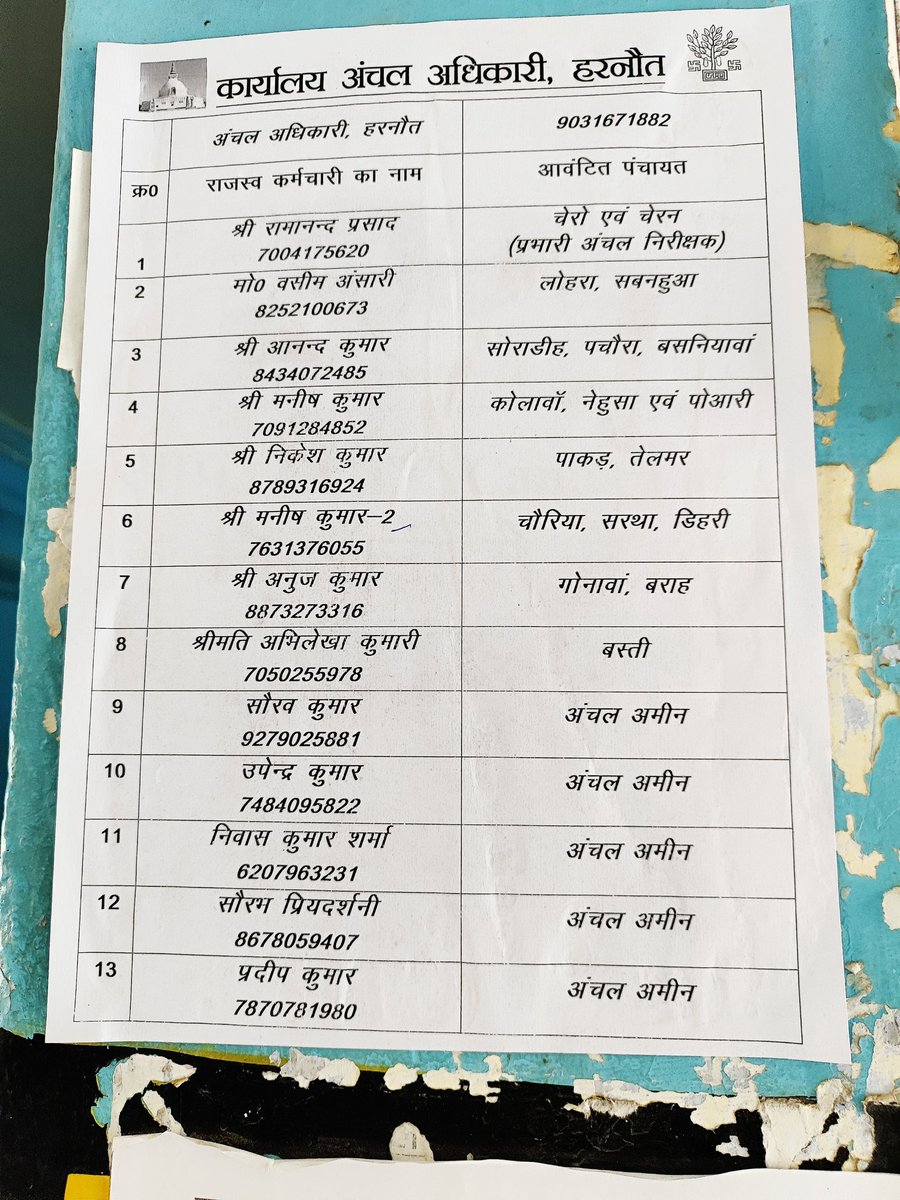 कार्यालय अंचल अधिकारी, हरनौत
अंचल अधिकारी, हरनौत 9031671882
क्र0 राजस्व कर्मचारी का नाम आवंटित पंचायत
1 श्री रामानन्द प्रसाद चेरो एवं चेरन
7004175620 (प्रभारी अंचल निरीक्षक)
2 मो0 वसीम अंसारी लोहरा, सबनहुआ
8252100673
3 श्री आनन्द कुमार सोराडीह, पचौरा, बसनियावां
8434072485
4 श्री मनीष कुमार कोलावॉ, नेहुसा एवं पोआरी
7091284852
5 श्री निकेश कुमार पाकड़, तेलमर
8789316924
6 श्री मनीष कुमार–2 चौरिया, सरथा, डिहरी
7631376055
7 श्री अनुज कुमार गोनावां, बराह
8873273316
8 श्रीमति अभिलेखा कुमारी बस्ती
7050255978
9 सौरव कुमार अंचल अमीन
9279025881
10 उपेन्द्र कुमार अंचल अमीन
7484095822
11 निवास कुमार शर्मा अंचल अमीन
6207963231
12 सौरभ प्रियदर्शनी अंचल अमीन
8678059407
13 प्रदीप कुमार अंचल अमीन
7870781980